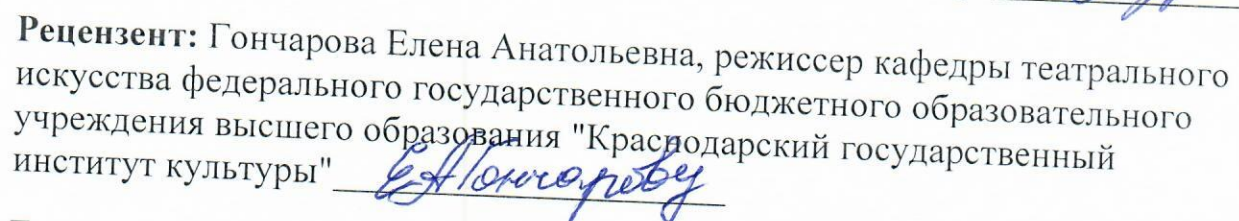 Рецензент: Гончарова Елена Анатольевна, режиссер кафедры театрального
искусства федерального государственного бюджетного образовательного
учреждения высшего образования "Краснодарский государственный
институт культуры"